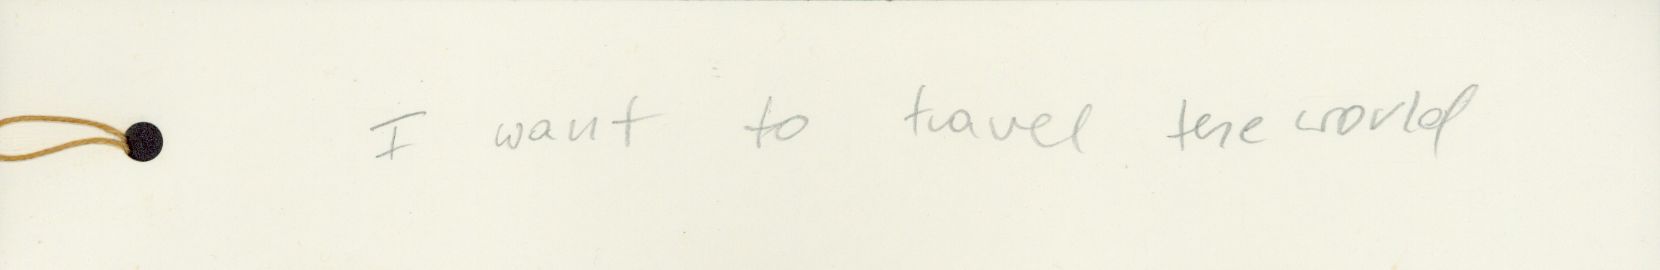 I want to travel the world